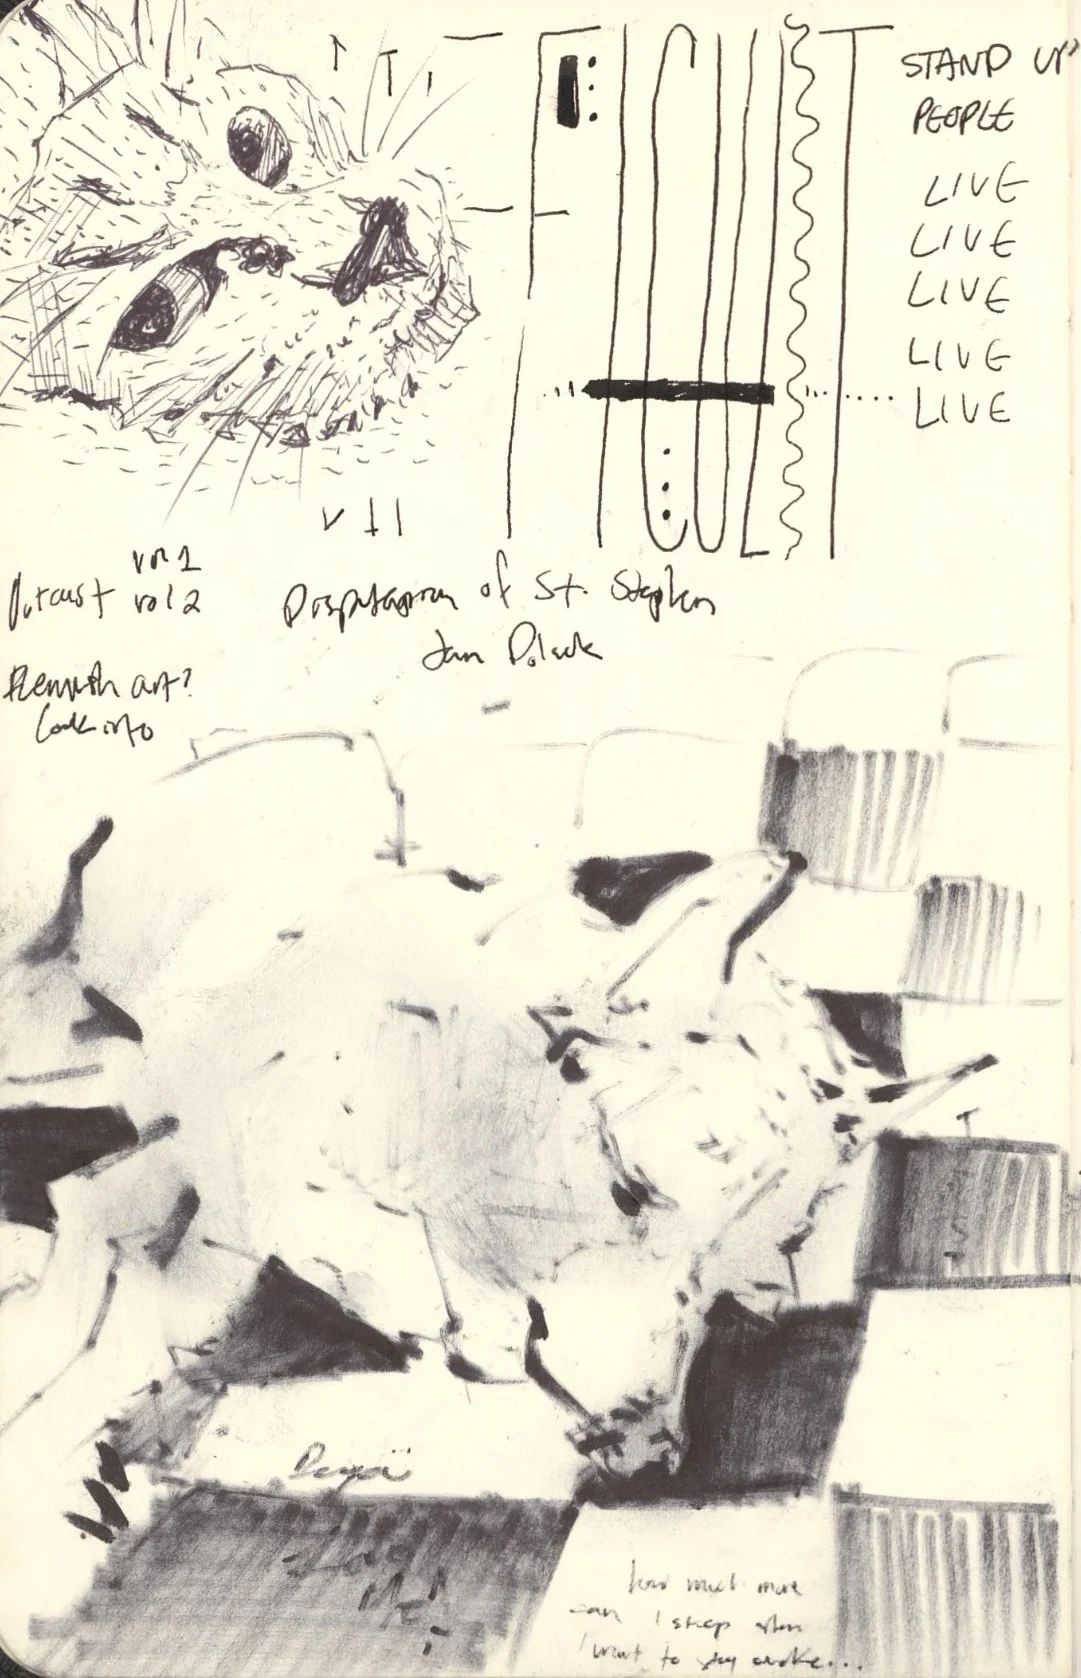 STAND UP
PEOPLE
LIVE
LIVE
LIVE
LIVE
LIVE
vol 1
Outcast vol 2
Disputation of St. Stephen
Jan Polack
Flemish art?
Look into
how much more
can I sleep when
I want to stay awake...